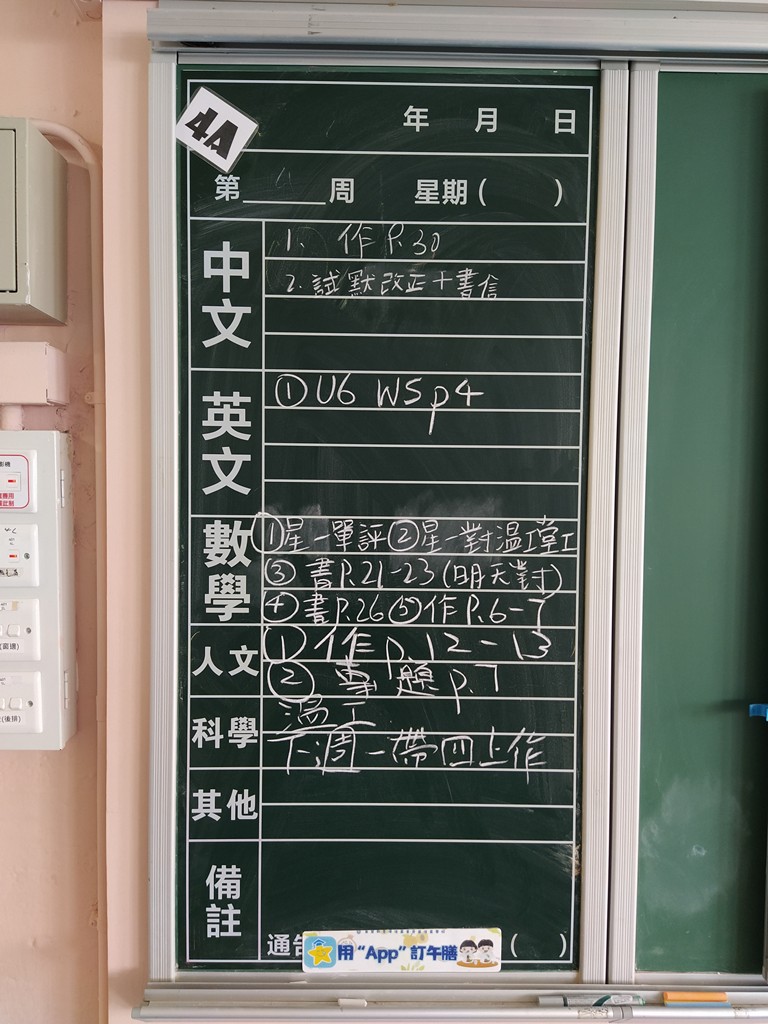 4A
年 月 日
第 周 星期( )
中文
1. 作 P.30
2. 試默改正+書信
英文
① U6 WS p4
數學
①星一單評②星一對溫工堂工
③ 書P.21-23(明天對)
④書P.26⑤作P.6-7
人文
① 作 p.12-13
② 專題 p.7
科學
溫工
下週一帶四上作
其他
備註
通告
用“App”訂午膳
( )